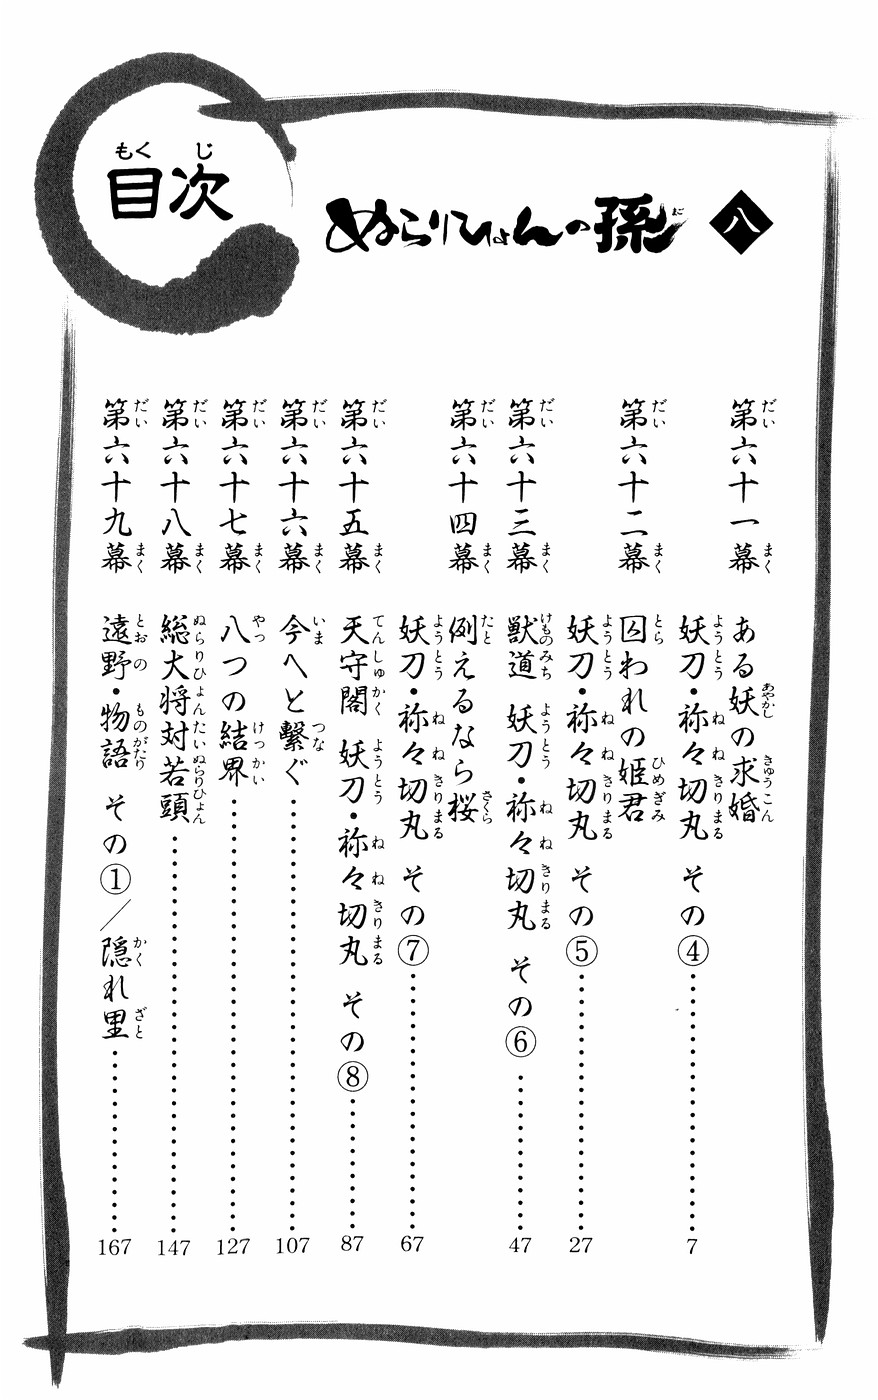 目次
ぬらりひょんの孫 八
第六十一幕 ある妖の求婚
妖刀・祢々切丸 その④……7
第六十二幕 囚われの姫君
妖刀・祢々切丸 その⑤……27
第六十三幕 獣道 妖刀・祢々切丸 その⑥……47
第六十四幕 例えるなら桜
妖刀・祢々切丸 その⑦……67
第六十五幕 天守閣 妖刀・祢々切丸 その⑧……87
第六十六幕 今へと繋ぐ……107
第六十七幕 八つの結界……127
第六十八幕 総大将対若頭……147
第六十九幕 遠野・物語 その①/隠れ里……167